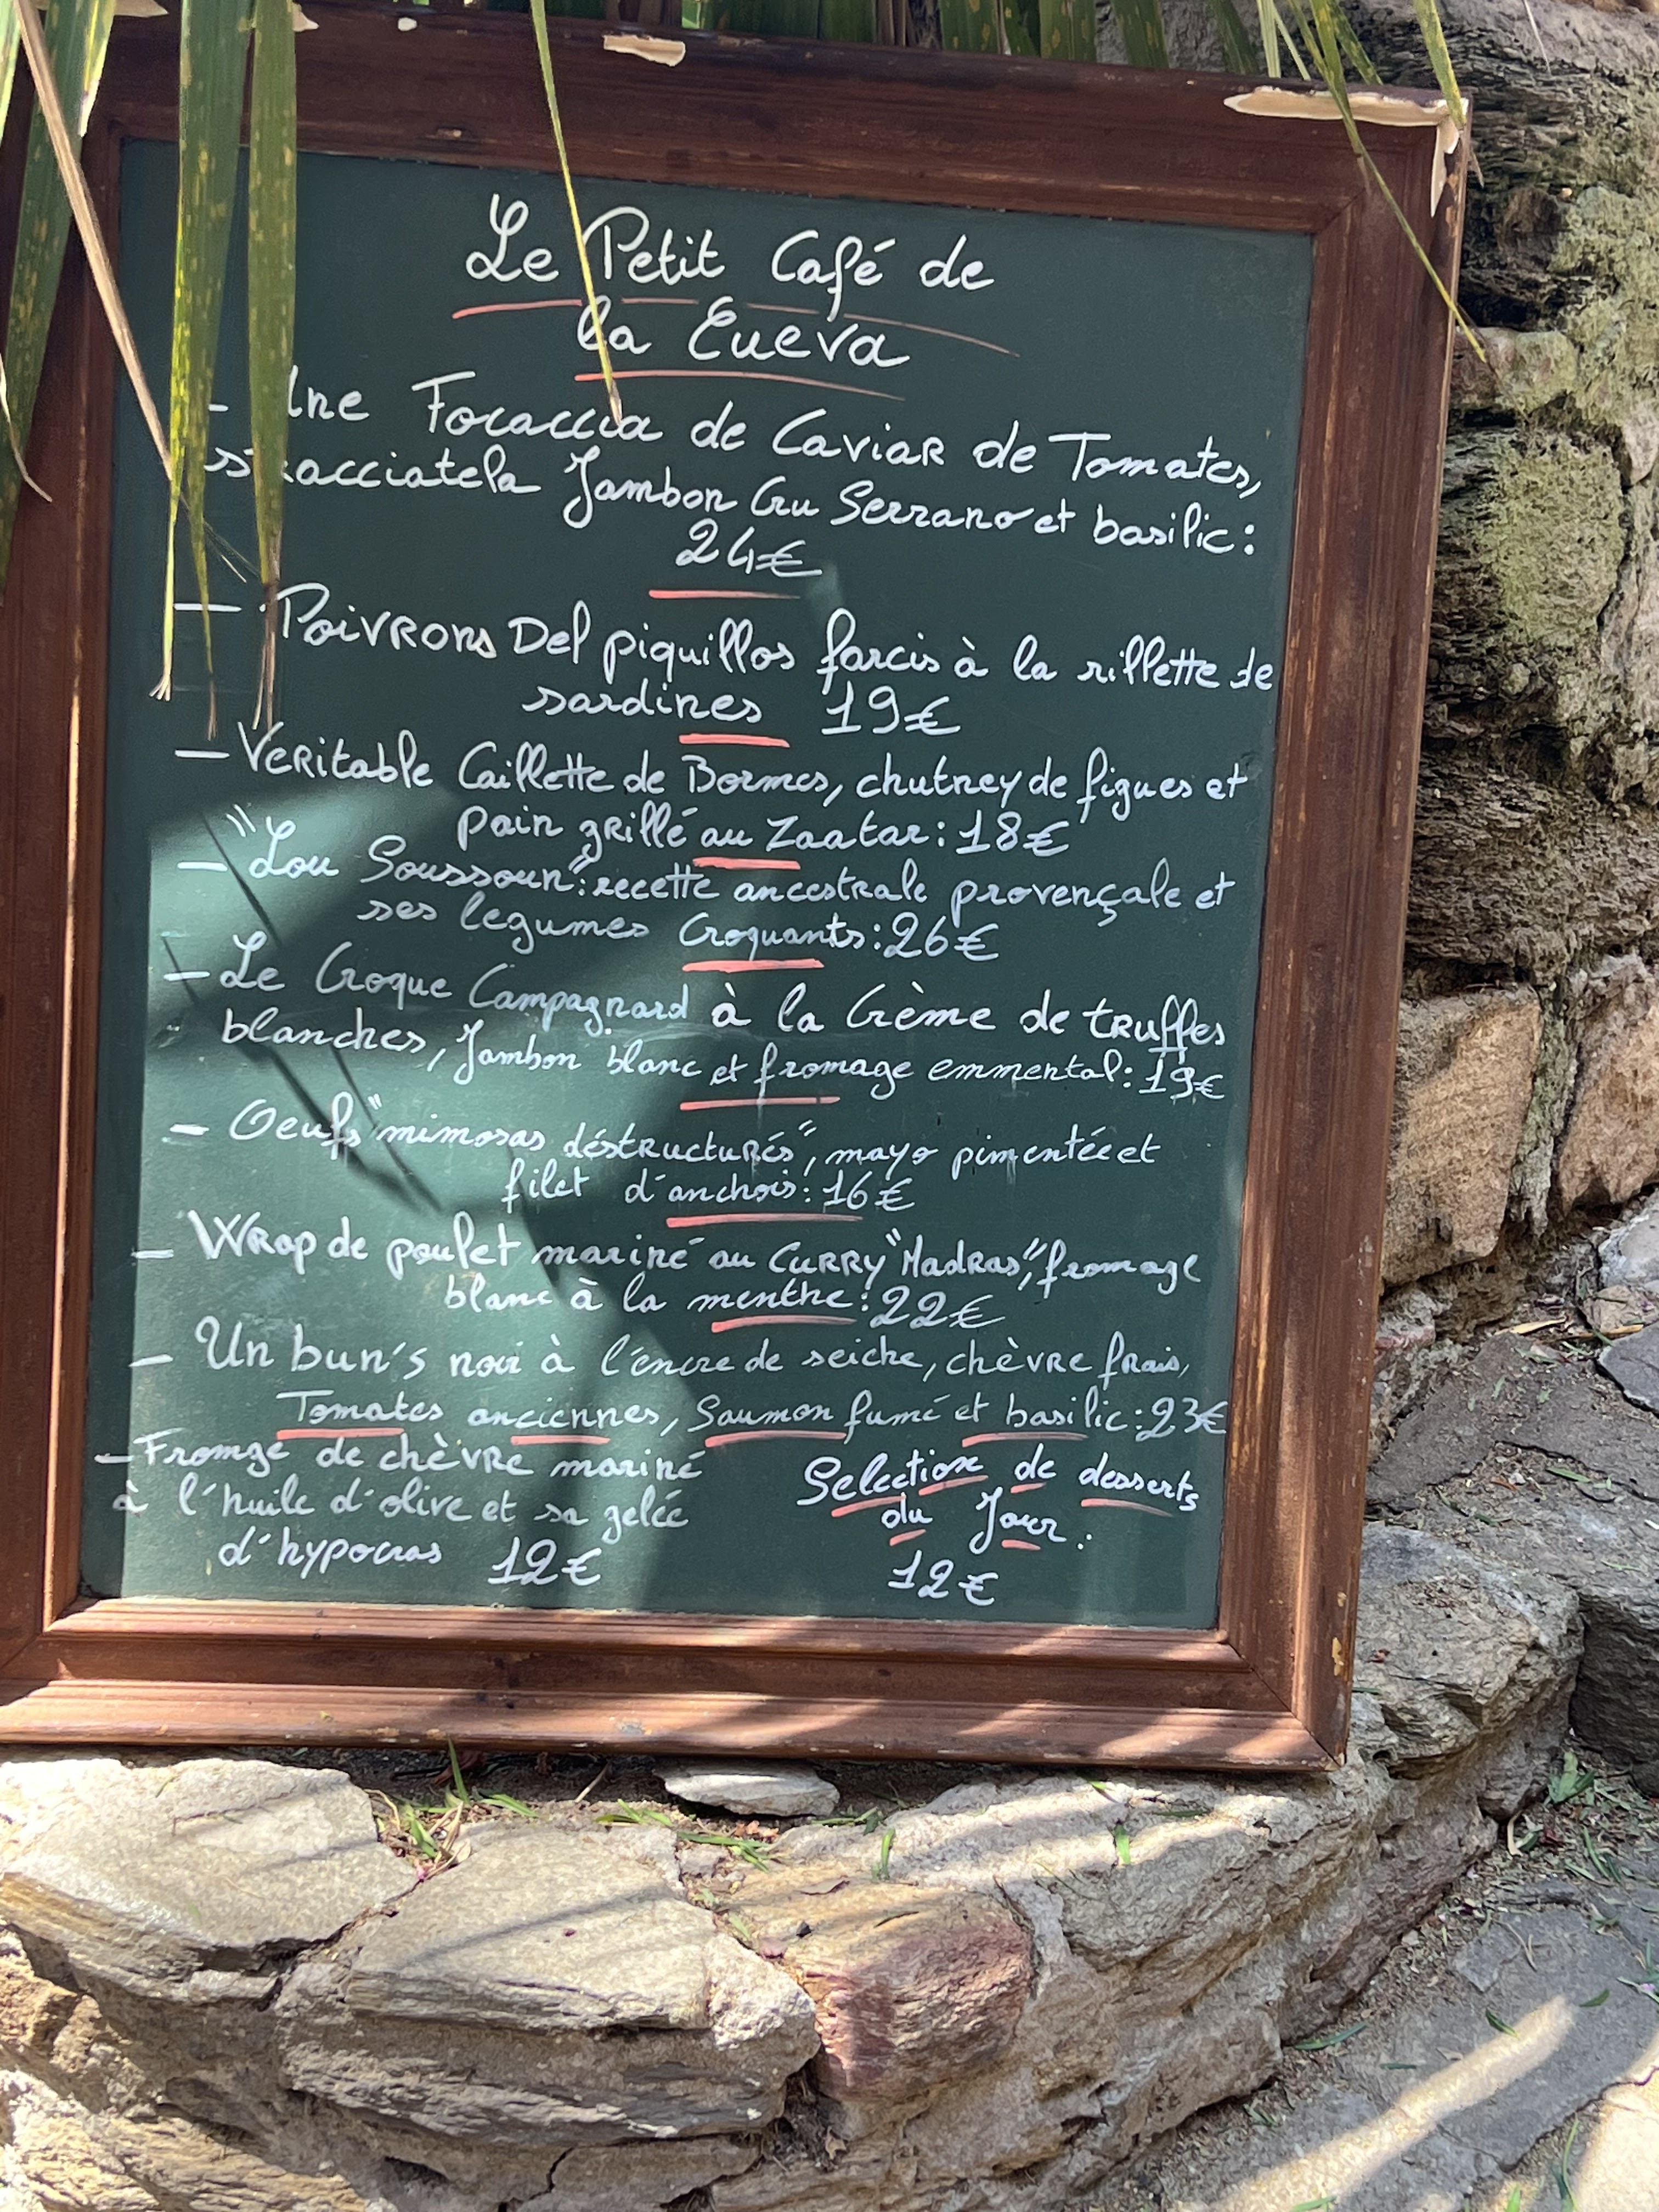 Le Petit Café de
la Cueva
- Une Focaccia de Caviar de Tomates,
stracciatela Jambon Cru Serrano et basilic :
24€
- Poivrons Del piquillos farcis à la rillette de
sardines 19€
- Veritable Caillette de Bormes, chutney de figues et
pain grillé au Zaatar : 18€
- "Lou Soussoun" : recette ancestrale provençale et
ses legumes Croquants : 26€
- Le Croque Campagnard à la Crème de truffes
blanches, Jambon blanc et fromage emmental : 19€
- Oeufs "mimosas déstructurés", mayo pimentée et
filet d'anchois : 16€
- Wrap de poulet mariné au CURRY "Madras", fromage
blanc à la menthe : 22€
- Un bun's noir à l'encre de seiche, chèvre frais,
Tomates anciennes, Saumon fumé et basilic : 23€
- Fromge de chèvre mariné
à l'huile d'olive et sa gelée
d'hypocras 12€
Selection de desserts
du Jour :
12€